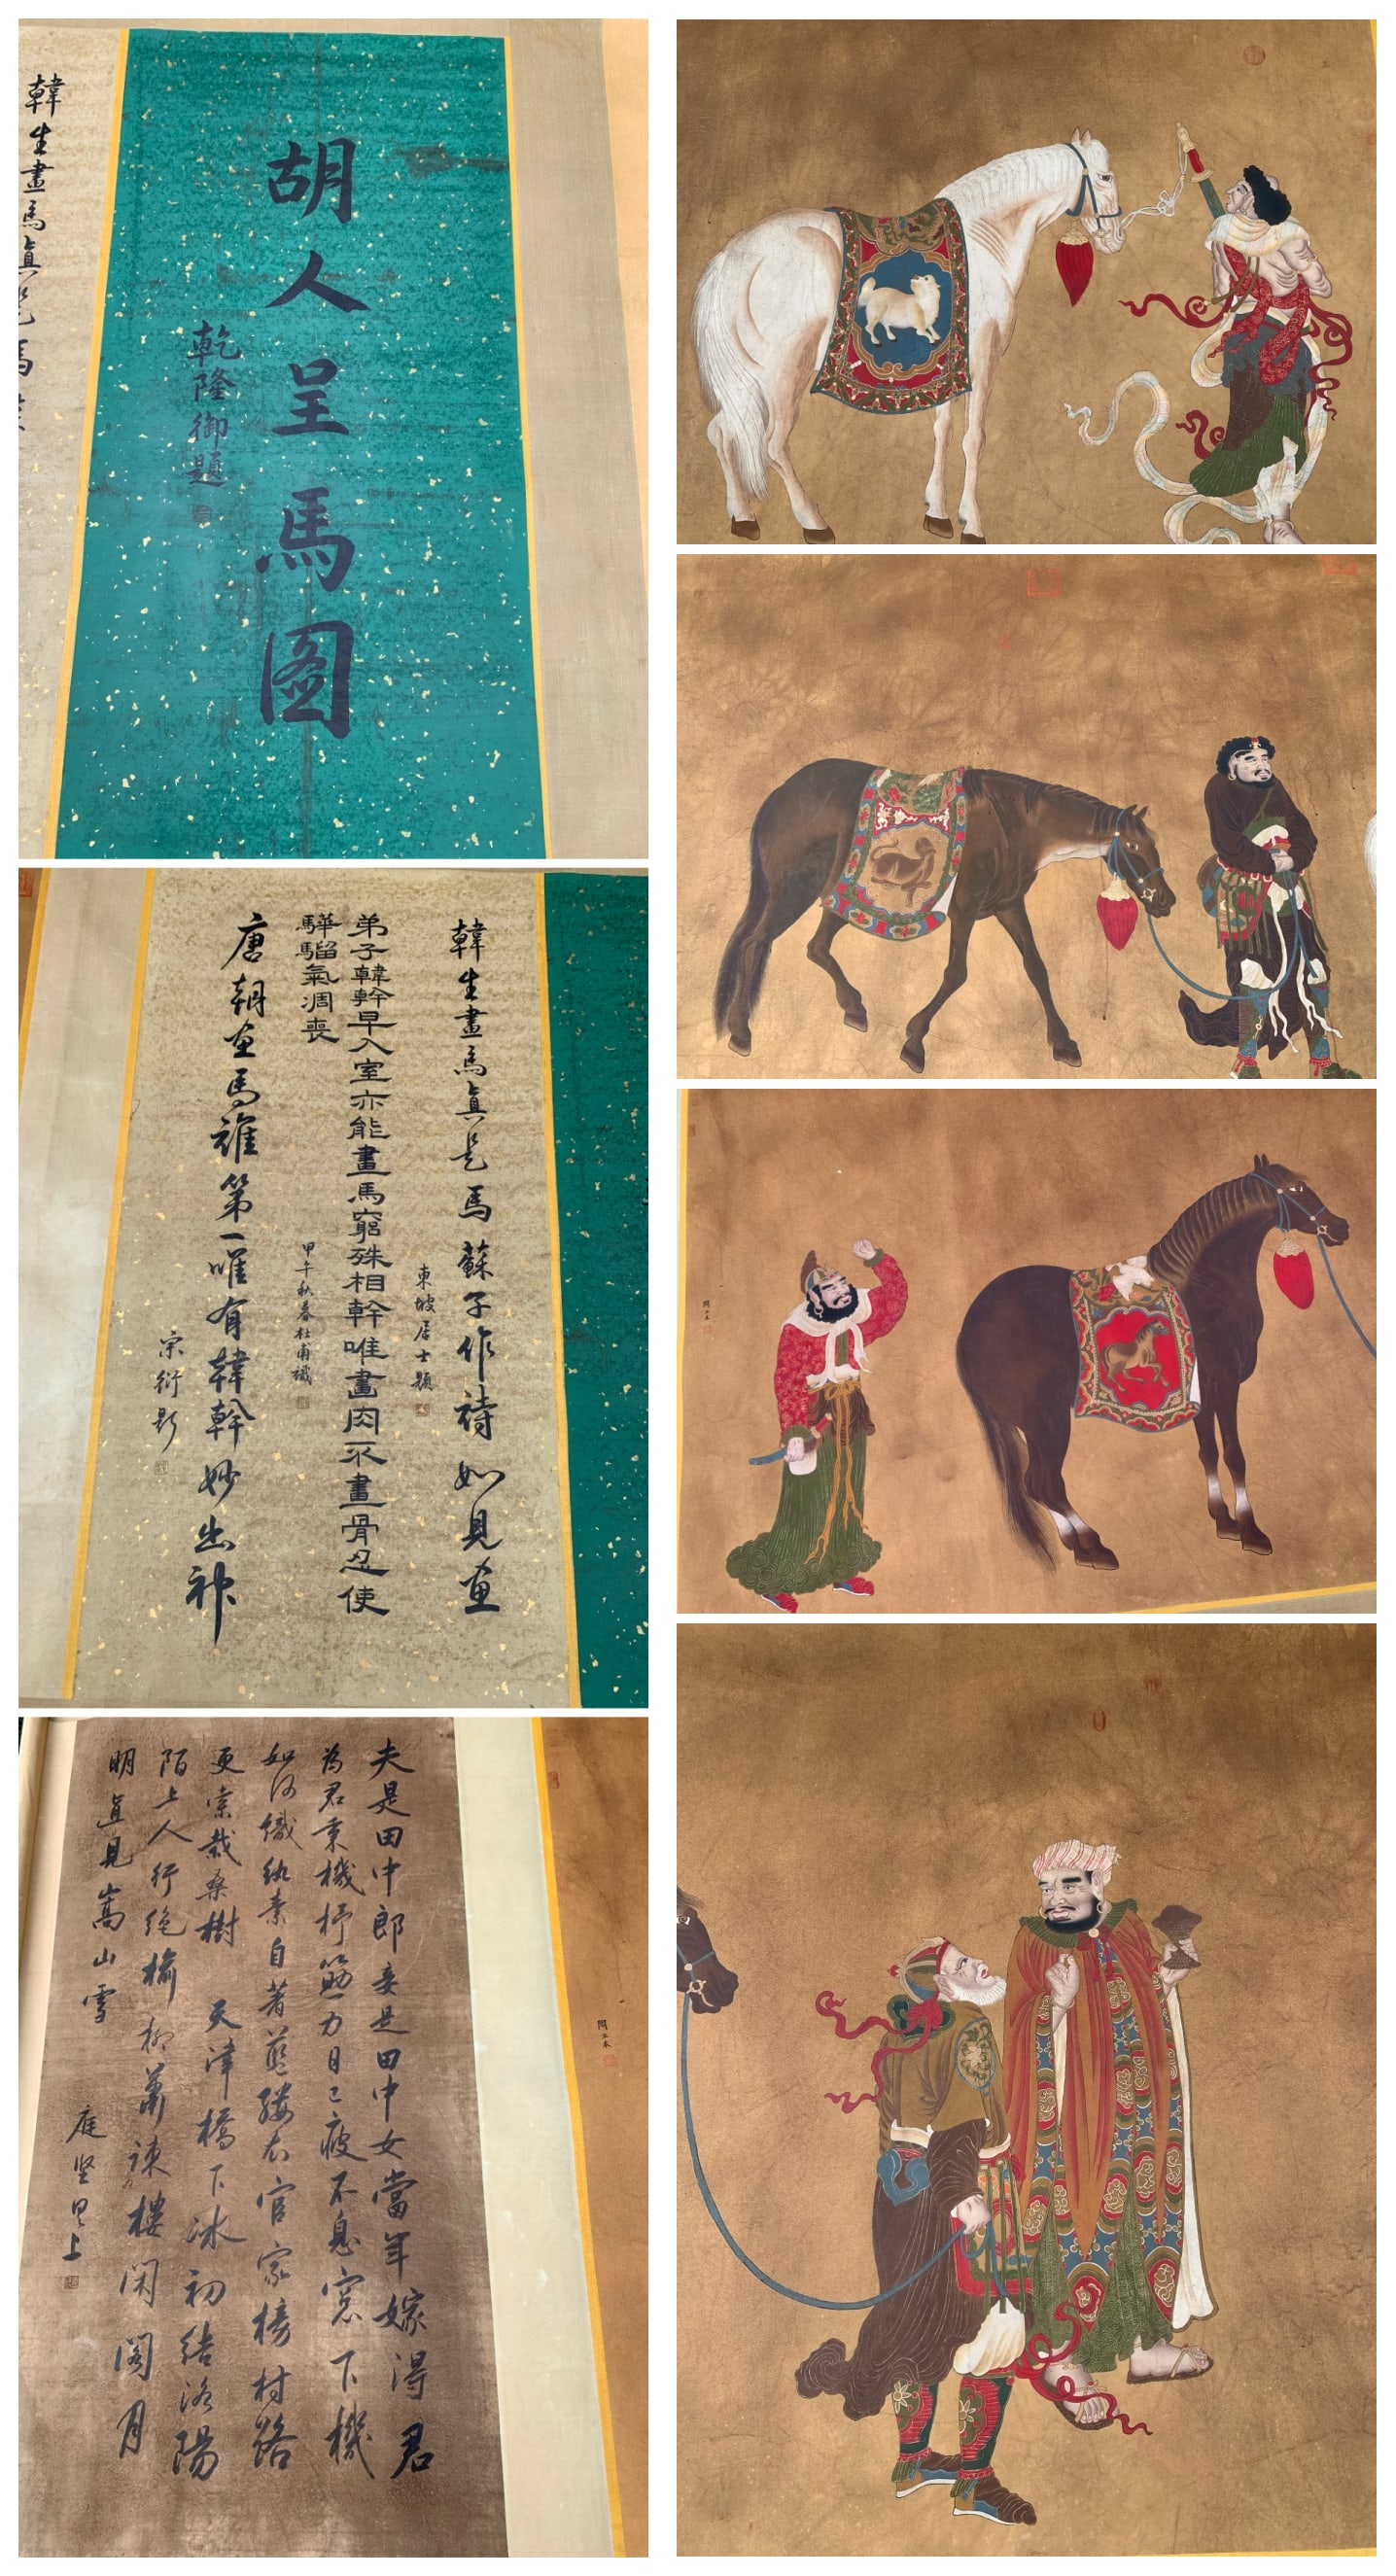 胡人呈馬圖
乾隆御題
韓生畫馬真是馬
韓生畫馬真是馬蘇子作詩如見畫
東坡居士題
弟子韓幹早入室亦能畫馬窮殊相幹唯畫肉不畫骨忍使
驊騮氣凋喪
甲午秋暮杜甫識
唐朝畫馬誰第一唯有韓幹妙出神
宗衍題
夫是田中郎妾是田中女當年嫁得君
為君秉機杼筋力日已疲不息窓下機
如何織紈素自著藍縷衣官家榜村路
更索栽桑樹 天津橋下冰初結洛陽
陌上人行絕榆柳蕭疎樓閣閑月
明直見嵩山雪
庭堅呈上
閻立本
閻立本